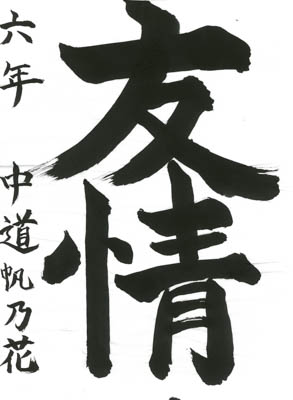 友情
六年 中道帆乃花